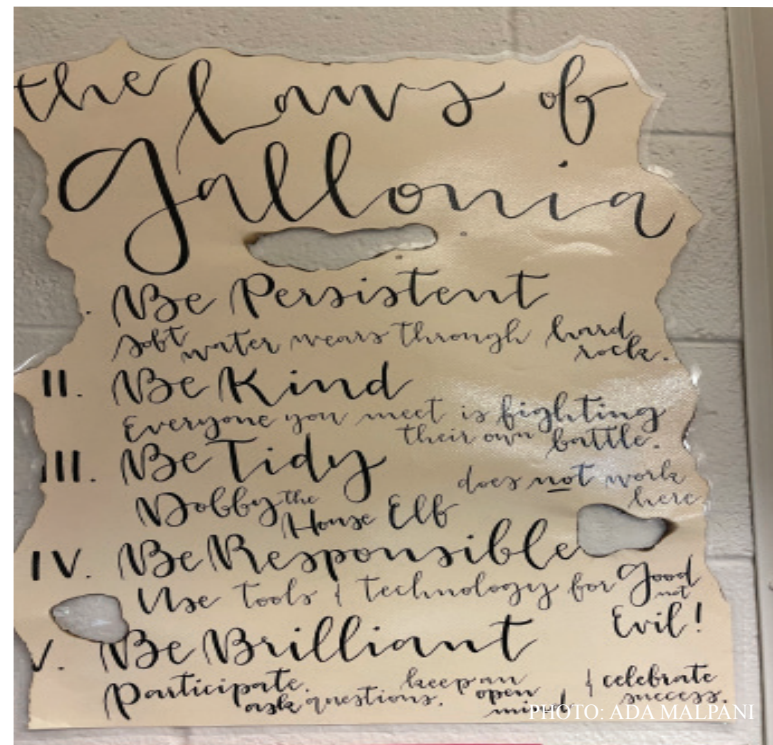 the Laws of
Gallonia
. Be Persistent
soft water wears through hard
rock.
II. Be Kind
Everyone you meet is fighting
their own battle.
III. Be Tidy
Dobby the House Elf does not work
here.
IV. Be Responsible
Use tools & technology for Good
not
Evil!
V. Be Brilliant
Participate. keep an & celebrate
ask questions. open success.
mind
PHOTO: ADA MALPANI